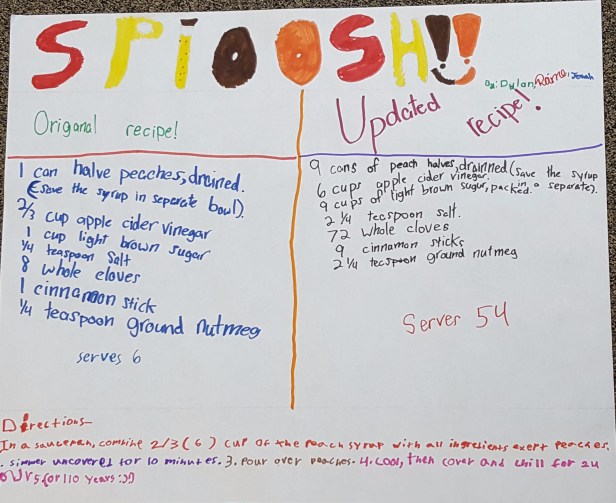 SPlOOSH!!
By: Dylan, Raime, Jonah
Origanal recipe!
1 can halve peaches, drained.
(save the syrup in separate bowl).
2/3 cup apple cider vinegar
1 cup light brown sugar
1/4 teaspoon Salt
8 whole cloves
1 cinnamon stick
1/4 teaspoon ground nutmeg
serves 6
Updated recipe!
9 cans of peach halves, drainned (save the syrup
in a separate).
6 cups apple cider vinegar.
9 cups of light brown sugar, packed.
2 1/4 teaspoon salt.
72 whole cloves
9 cinnamon sticks
2 1/4 teaspoon ground nutmeg
Server 54
Directions-
In a saucepan, combine 2/3 (6) cup of the peach syrup with all ingredients exert peaches.
. simmer uncovered for 10 minutes. 3. Pour over peaches. 4. Cool, then cover and chill for 24
ours (or 110 years :))